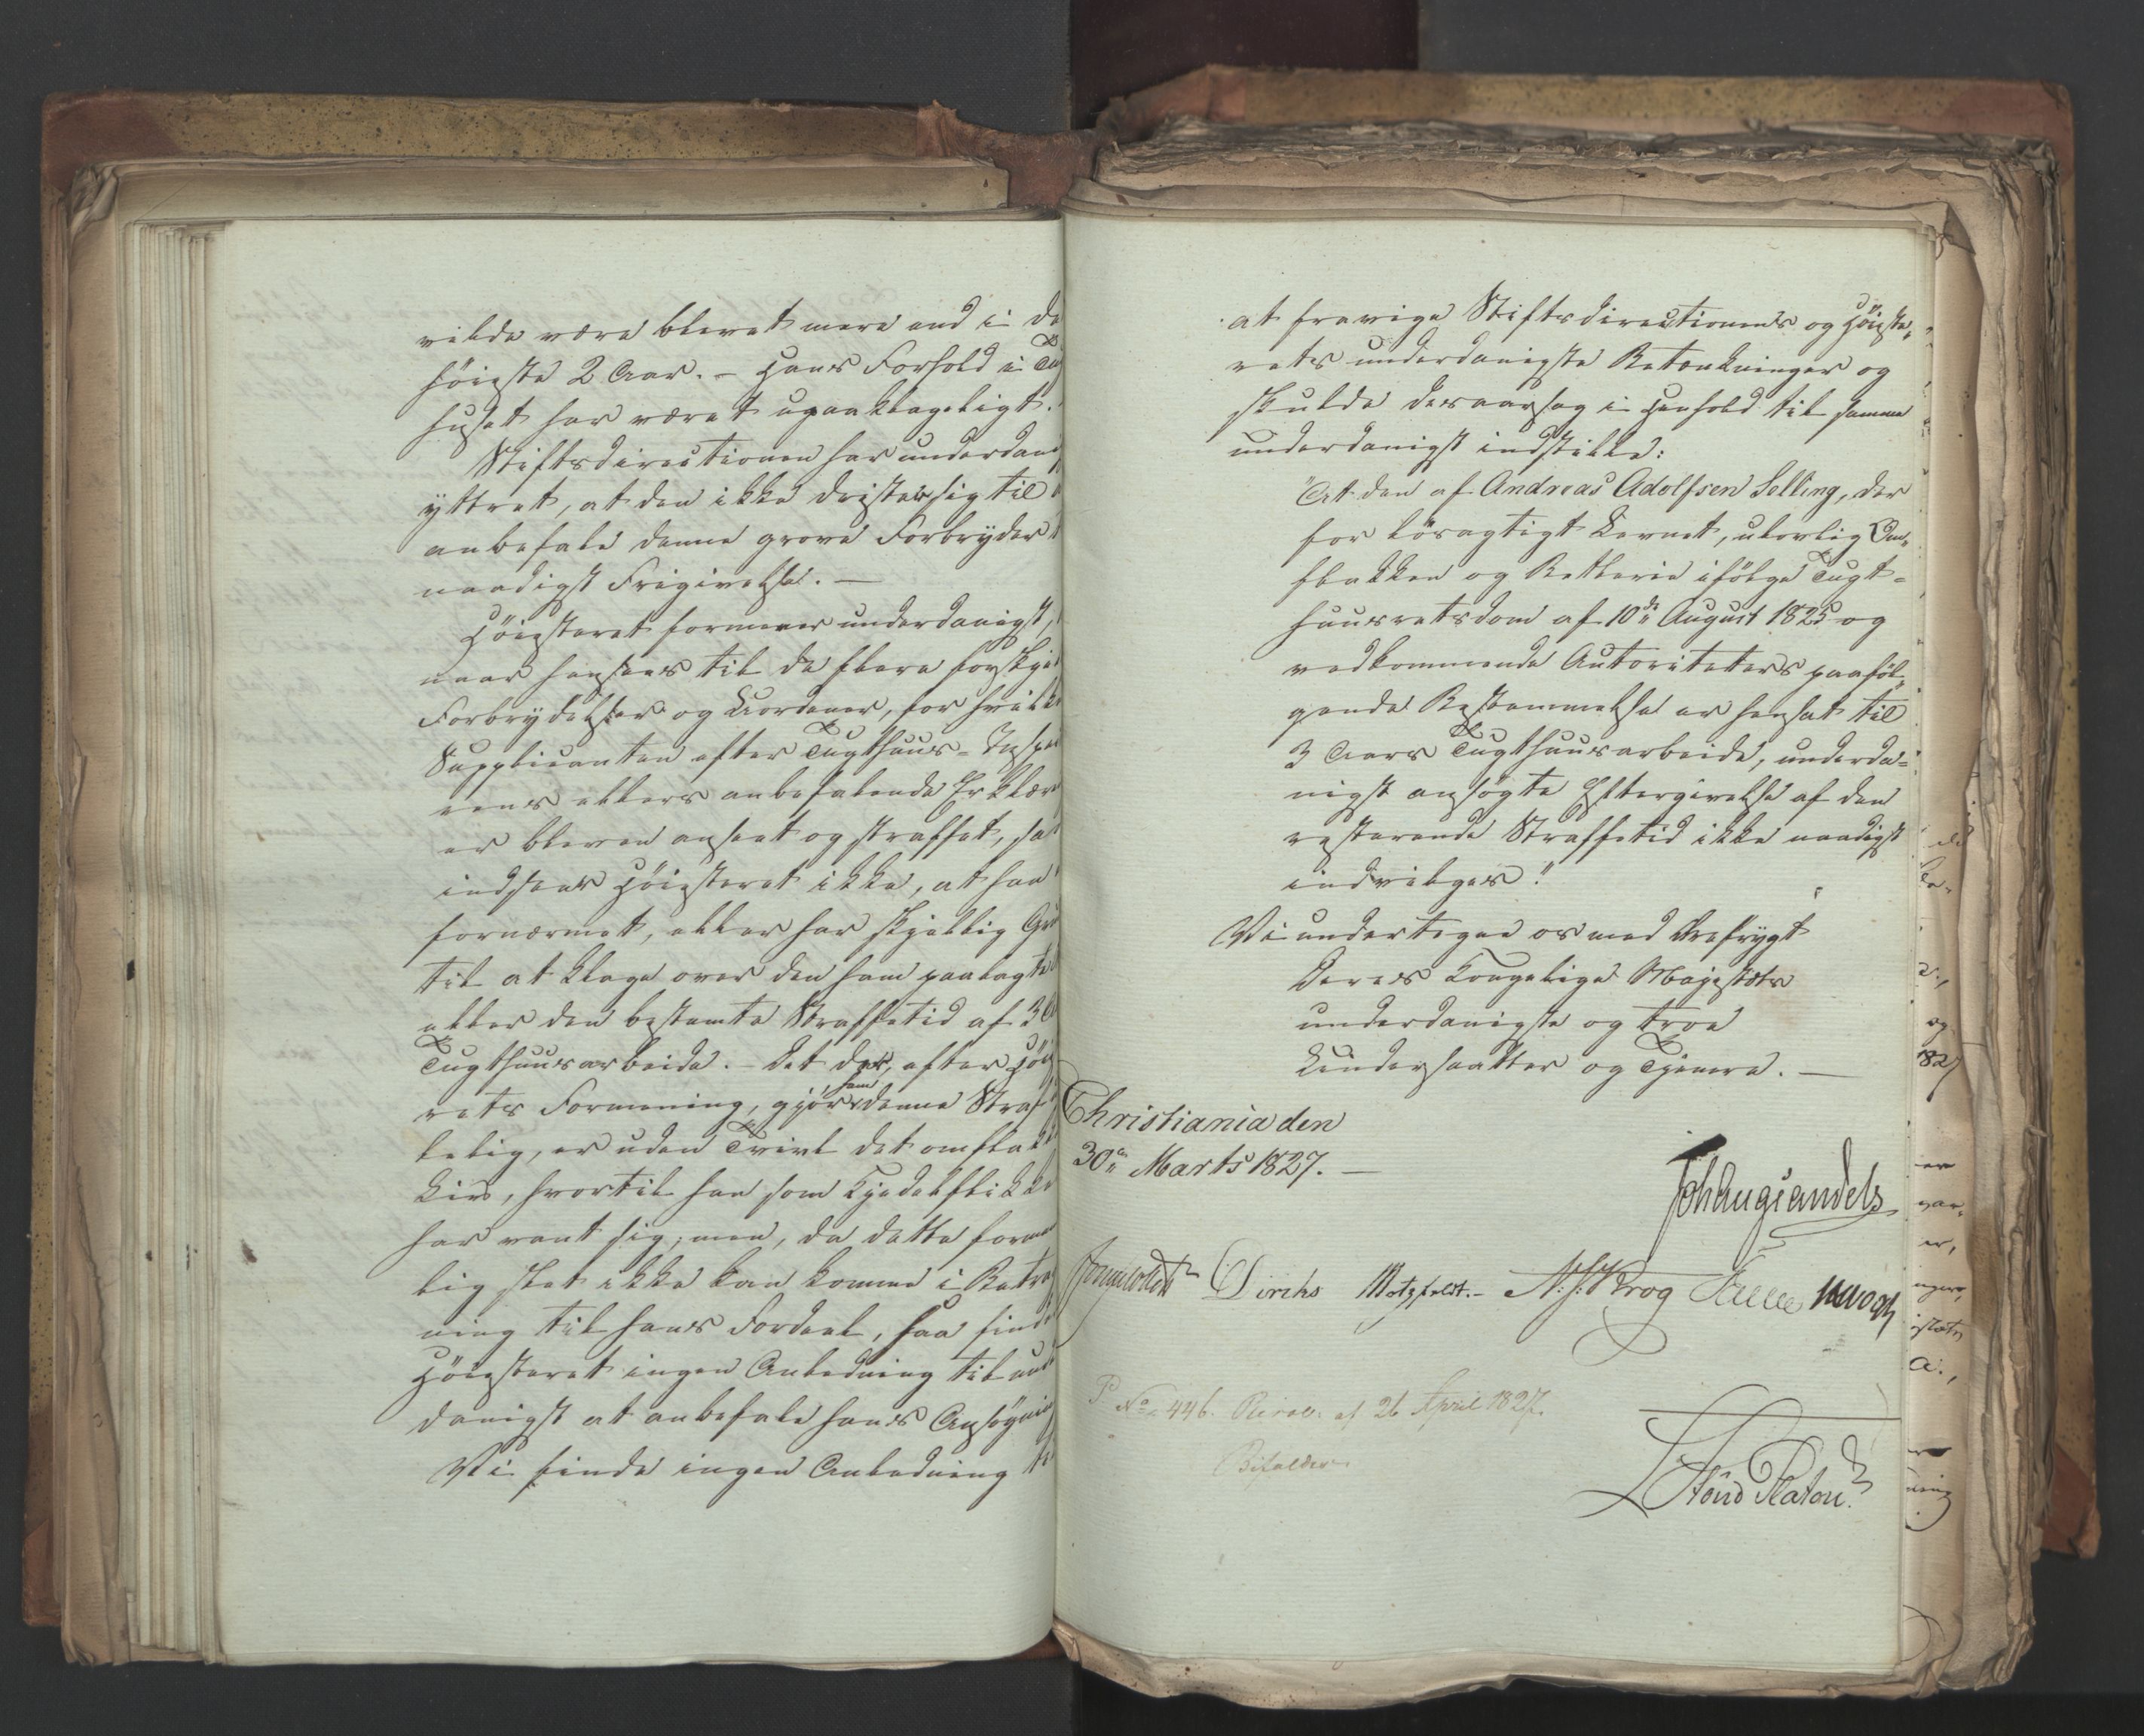 vilde være blevet mere end i de
höieste 2 Aar. – Hans Forhold i Tug
huset har været upaaklageligt.
Stiftsdirectionen har underdanig
yttret, at den ikke drister sig til
anbefale denne grove Forbryder
naadigst Frigivelse. —
Höiesteret formener underdanigst,
naar hensees til de flere forskjel
Forbrydelser og Uordener, for hvilke
Supplicanten efter Tugthuus-Inspec
eens ellers anbefalende Erklær
er bleven anseet og straffet, saa
indseer Höiesteret ikke, at han
fornærmet, eller har skjellig Gru
til at klage over den ham paalagte
eller den bestemte Straffetid af 3 A
Tugthuusarbeide. – Det der, efter Höie
rets Formening, gjör ham denne Straf
lelig, er uden Tvivl det omflak
Liv, hvortil han som Kjedelflikke
har vant sig; men, da dette formo
lig slet ikke kan komme i Betrag
ning til hans Fordeel, saa finde
Höiesteret ingen Anledning til und
danigst at anbefale hans Ansögnin
Vi finde ingen Anledning ti
at fravige Stiftsdirectionens og Höieste-
rets underdanigste Betænkninger og
skulde desaarsag i Henhold til samme
underdanigst indstille:
"At den af Andreas Adolfsen Selling, der
for lösagtigt Levnet, ulovlig Om-
flakken og Betlerie ifölge Tugt-
huusretsdom af 10de August 1825 og
vedkommende Autoriteters paaföl-
gende Bestemmelse er hensat til
3 Aars Tugthuusarbeide, underda-
nigst ansögte Eftergivelse af den
resterende Straffetid ikke naadigst
indvilges."
Vi undertegne os med Ærefrygt
Deres Kongelige Majestæts
underdanigste og troe
Undersaatter og Tjenere. —
Christiania den
30te Marts 1827. —
Joh Aug Sandels
Diriks Motzfeldt. – N. J. Krog
P No 446. Resol. af 26 April 1827.
Bifaldes.
Platou.
1827